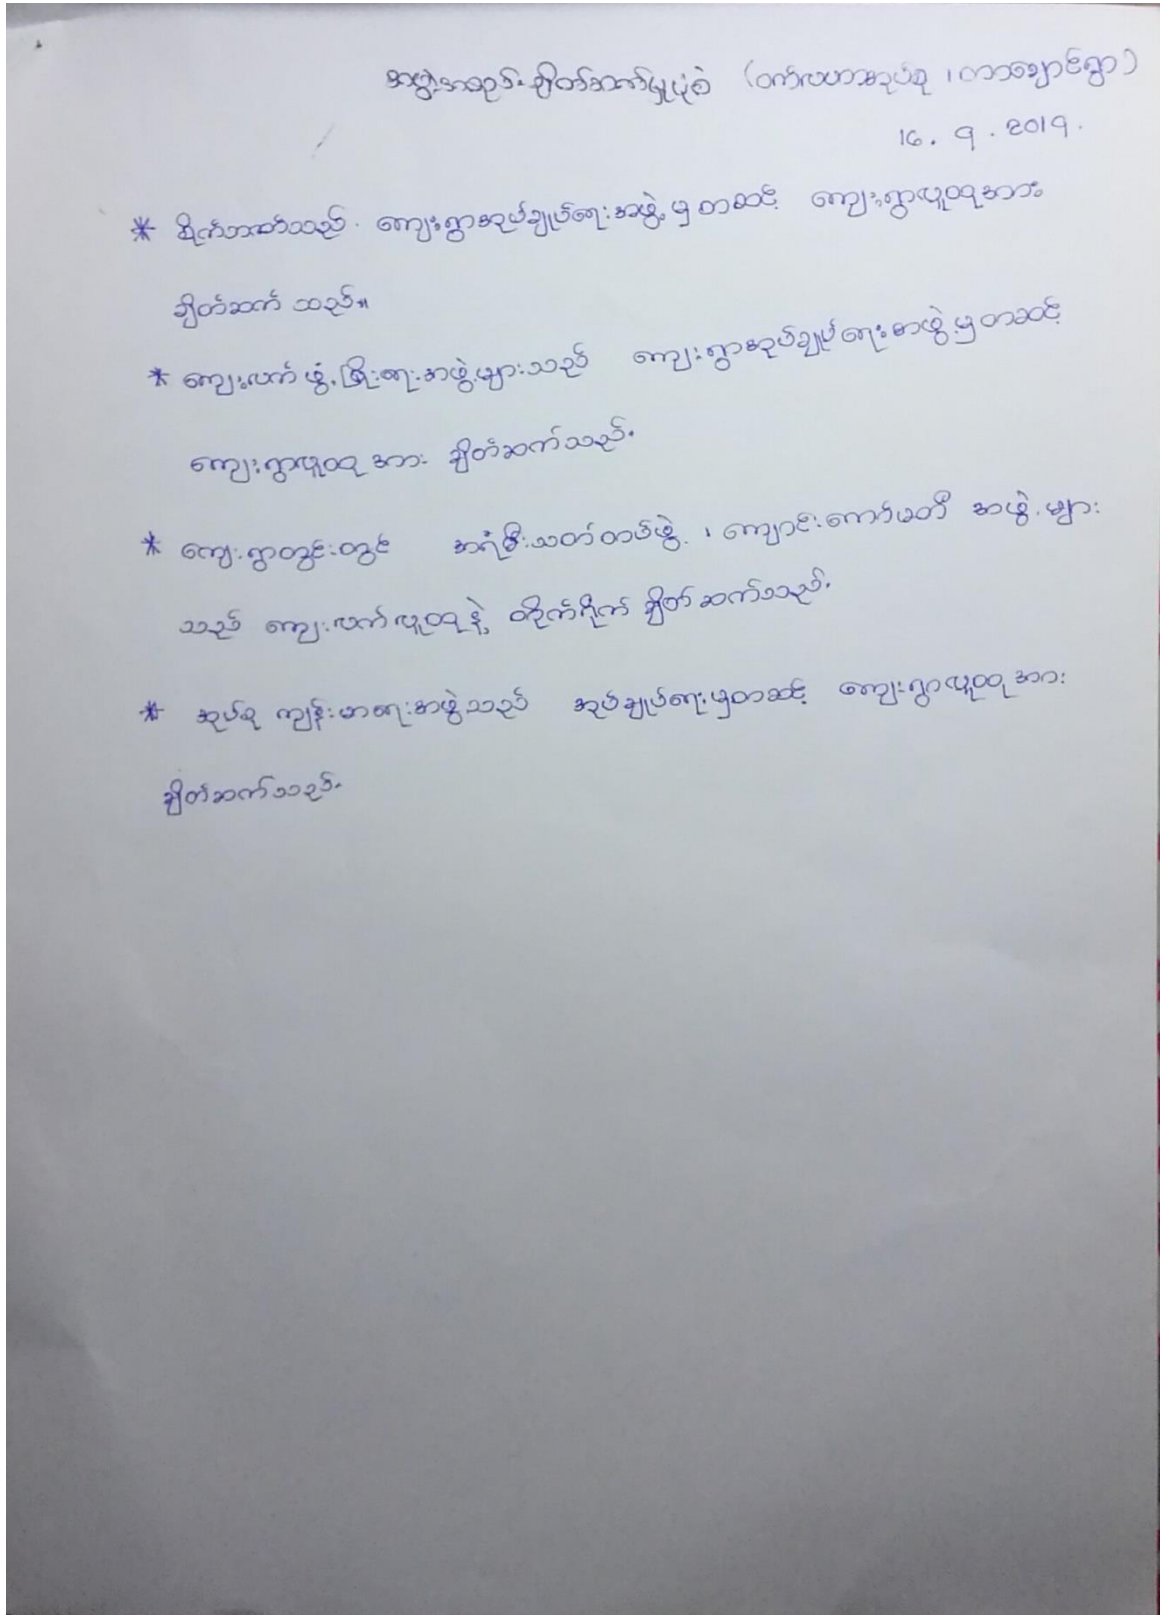 အဖွဲ့အစည်းချိတ်ဆက်မှုပုံစံ (ဝက်လဟာအုပ်စု ၊ တာချောင်ရွာ)
16 . 9 . 2019 .
* စိုက်ဘဏ်သည် ကျေးရွာအုပ်ချုပ်ရေးအဖွဲ့မှတဆင့် ကျေးရွာလူထုအား
ချိတ်ဆက် သည်။
* ကျေးလက်ဖွံ့ဖြိုးရေးအဖွဲ့များသည် ကျေးရွာအုပ်ချုပ်ရေးအဖွဲ့မှတဆင့်
ကျေးရွာလူထုအား ချိတ်ဆက်သည်.
* ကျေးရွာတွင်းတွင် အရံမီးသတ်တပ်ဖွဲ့ ၊ ကျောင်းကော်မတီ အဖွဲ့များ
သည် ကျေးလက်လူထုနဲ့ တိုက်ရိုက် ချိတ်ဆက်သည်.
* အုပ်စု ကျန်းမာရေးအဖွဲ့သည် အုပ်ချုပ်ရေးမှတဆင့် ကျေးရွာလူထုအား
ချိတ်ဆက်သည်.